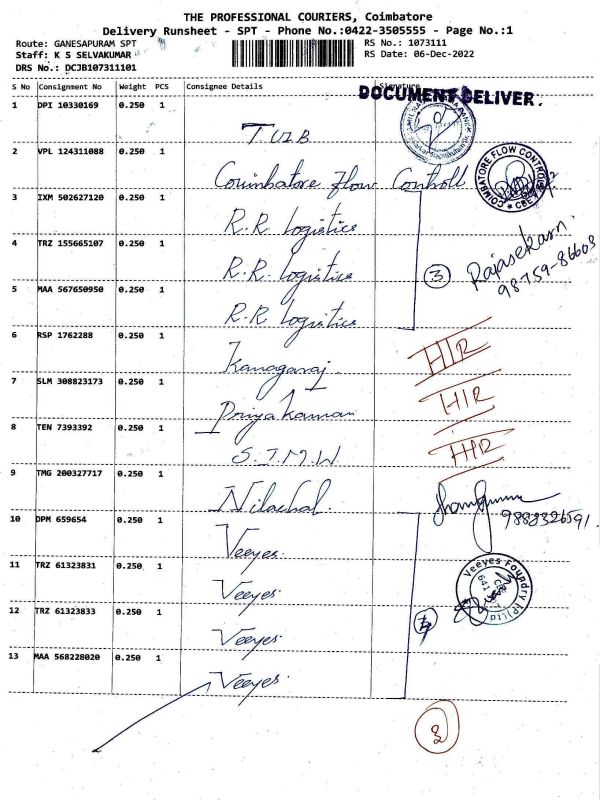 THE PROFESSIONAL COURIERS, Coimbatore
Delivery Runsheet - SPT - Phone No.:0422-3505555 - Page No.:1
Route: GANESAPURAM SPT
Staff: K S SELVAKUMAR
DRS No.: DCJB107311101
RS No.: 1073111
RS Date: 06-Dec-2022
S No Consignment No Weight PCS Consignee Details Signature
DOCUMENT DELIVER.
1 DPI 10330169 0.250 1 TUIB
2 VPL 124311088 0.250 1 Coimbatore Flow Controll
COIMBATORE FLOW CONTROLS
3 IXM 502627120 0.250 1 R.R. Logistics
4 TRZ 155665107 0.250 1 R.R. Logistics
3
Rajasekarn.
98759-86603
5 MAA 567650950 0.250 1 R.R. Logistics
6 RSP 1762288 0.250 1 Kanagaraj
H/R
7 SLM 308823173 0.250 1 Priya Kannan
H/R
8 TEN 7393392 0.250 1 S.I.M.W
H/R
9 TMG 200327717 0.250 1 Nilachal.
9888326591.
10 DPM 659654 0.250 1 Veeyes.
11 TRZ 61323831 0.250 1 Veeyes.
Veeyes Foundry (P) Ltd
641
12 TRZ 61323833 0.250 1 Veeyes.
4
13 MAA 568228020 0.250 1 Veeyes.
3